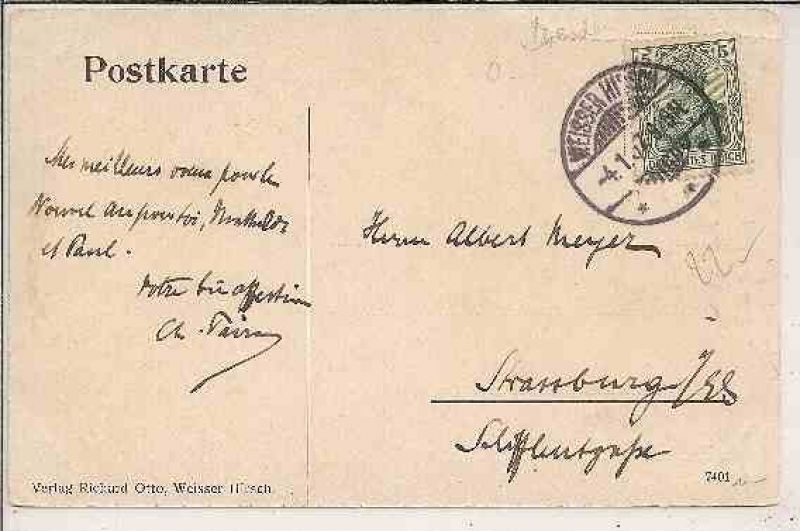 Postkarte
5
WEISSER HIRSCH
4.1.
DEUTSCHES REICH
Mes meilleurs voeux pour le
Nouvel An pour toi, Mathilde
et Paul.
Votre bien affectionné
Ch.
Herrn Albert Meyer
Strassburg i/Els
22
Verlag Richard Otto, Weisser Hirsch
7401